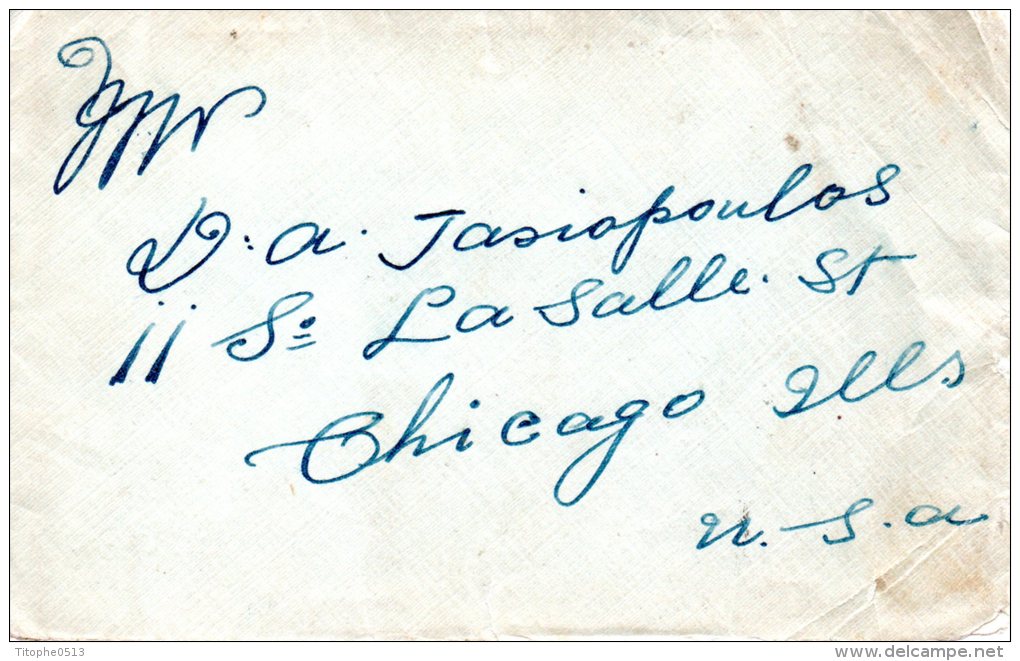 Mr
D. A. Tasiopoulos
11 So. La Salle. St
Chicago Ills
U.S.A
Titophe0513
www.delcampe.net